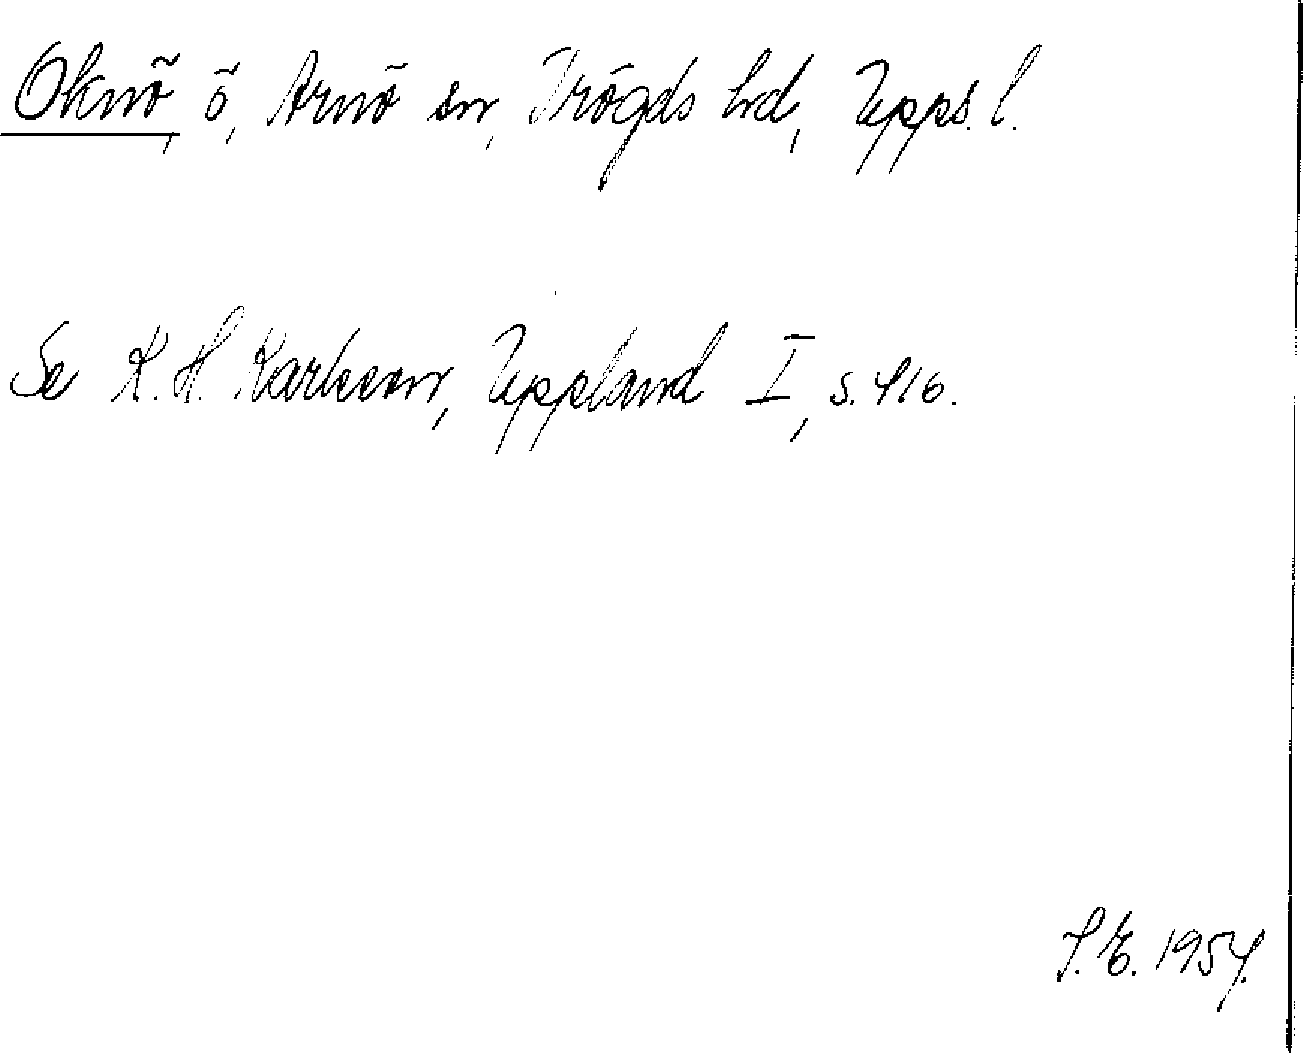 Oknö, ö, Arnö sn, Trögds hd, Upps. l.
Se K. H. Karlsson, Uppland I, s. 416.
S. E. 1954.